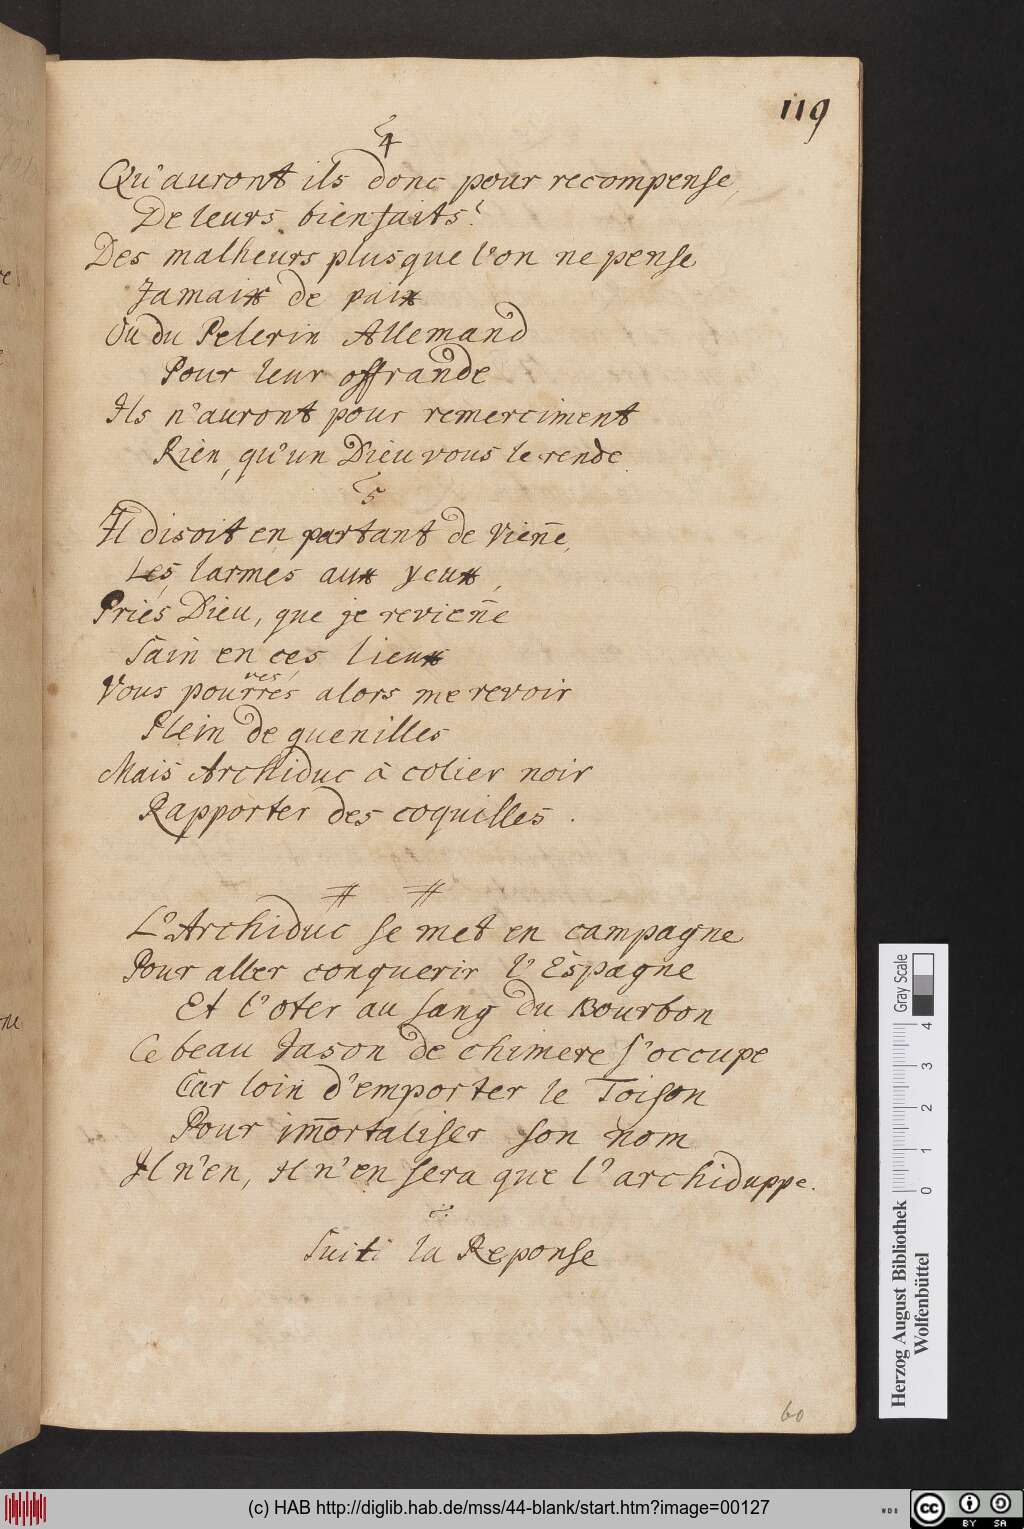 119
4
Qu'auront ils donc pour recompense,
De leurs bienfaits?
Des malheurs plus que l'on ne pense
Jamaix de paix
Ou du Pelerin Allemand
Pour leur offrande
Ils n'auront pour remerciment
Rien, qu'un Dieu vous le rende
5
Il disoit en partant de Vien̄e,
Les larmes aux yeux,
Priés Dieu, que je revien̄e
Sain en ces lieux
Vous pourrés alors me revoir
Plein de guenilles
Mais Archiduc à colier noir
Rapporter des coquilles.
L'Archiduc se met en campagne
Pour aller conquerir l'Espagne
Et l'oter au sang du Bourbon
Ce beau Jason de chimere s'occupe
Car loin d'emporter le Toison
Pour im̄ortaliser son nom
Il n'en, Il n'en sera que l'archiduppe.
Suit la Reponse
60
Herzog August Bibliothek
Wolfenbüttel
0 1 2 3 4
Gray Scale
(c) HAB http://diglib.hab.de/mss/44-blank/start.htm?image=00127
WDB
cc BY SA